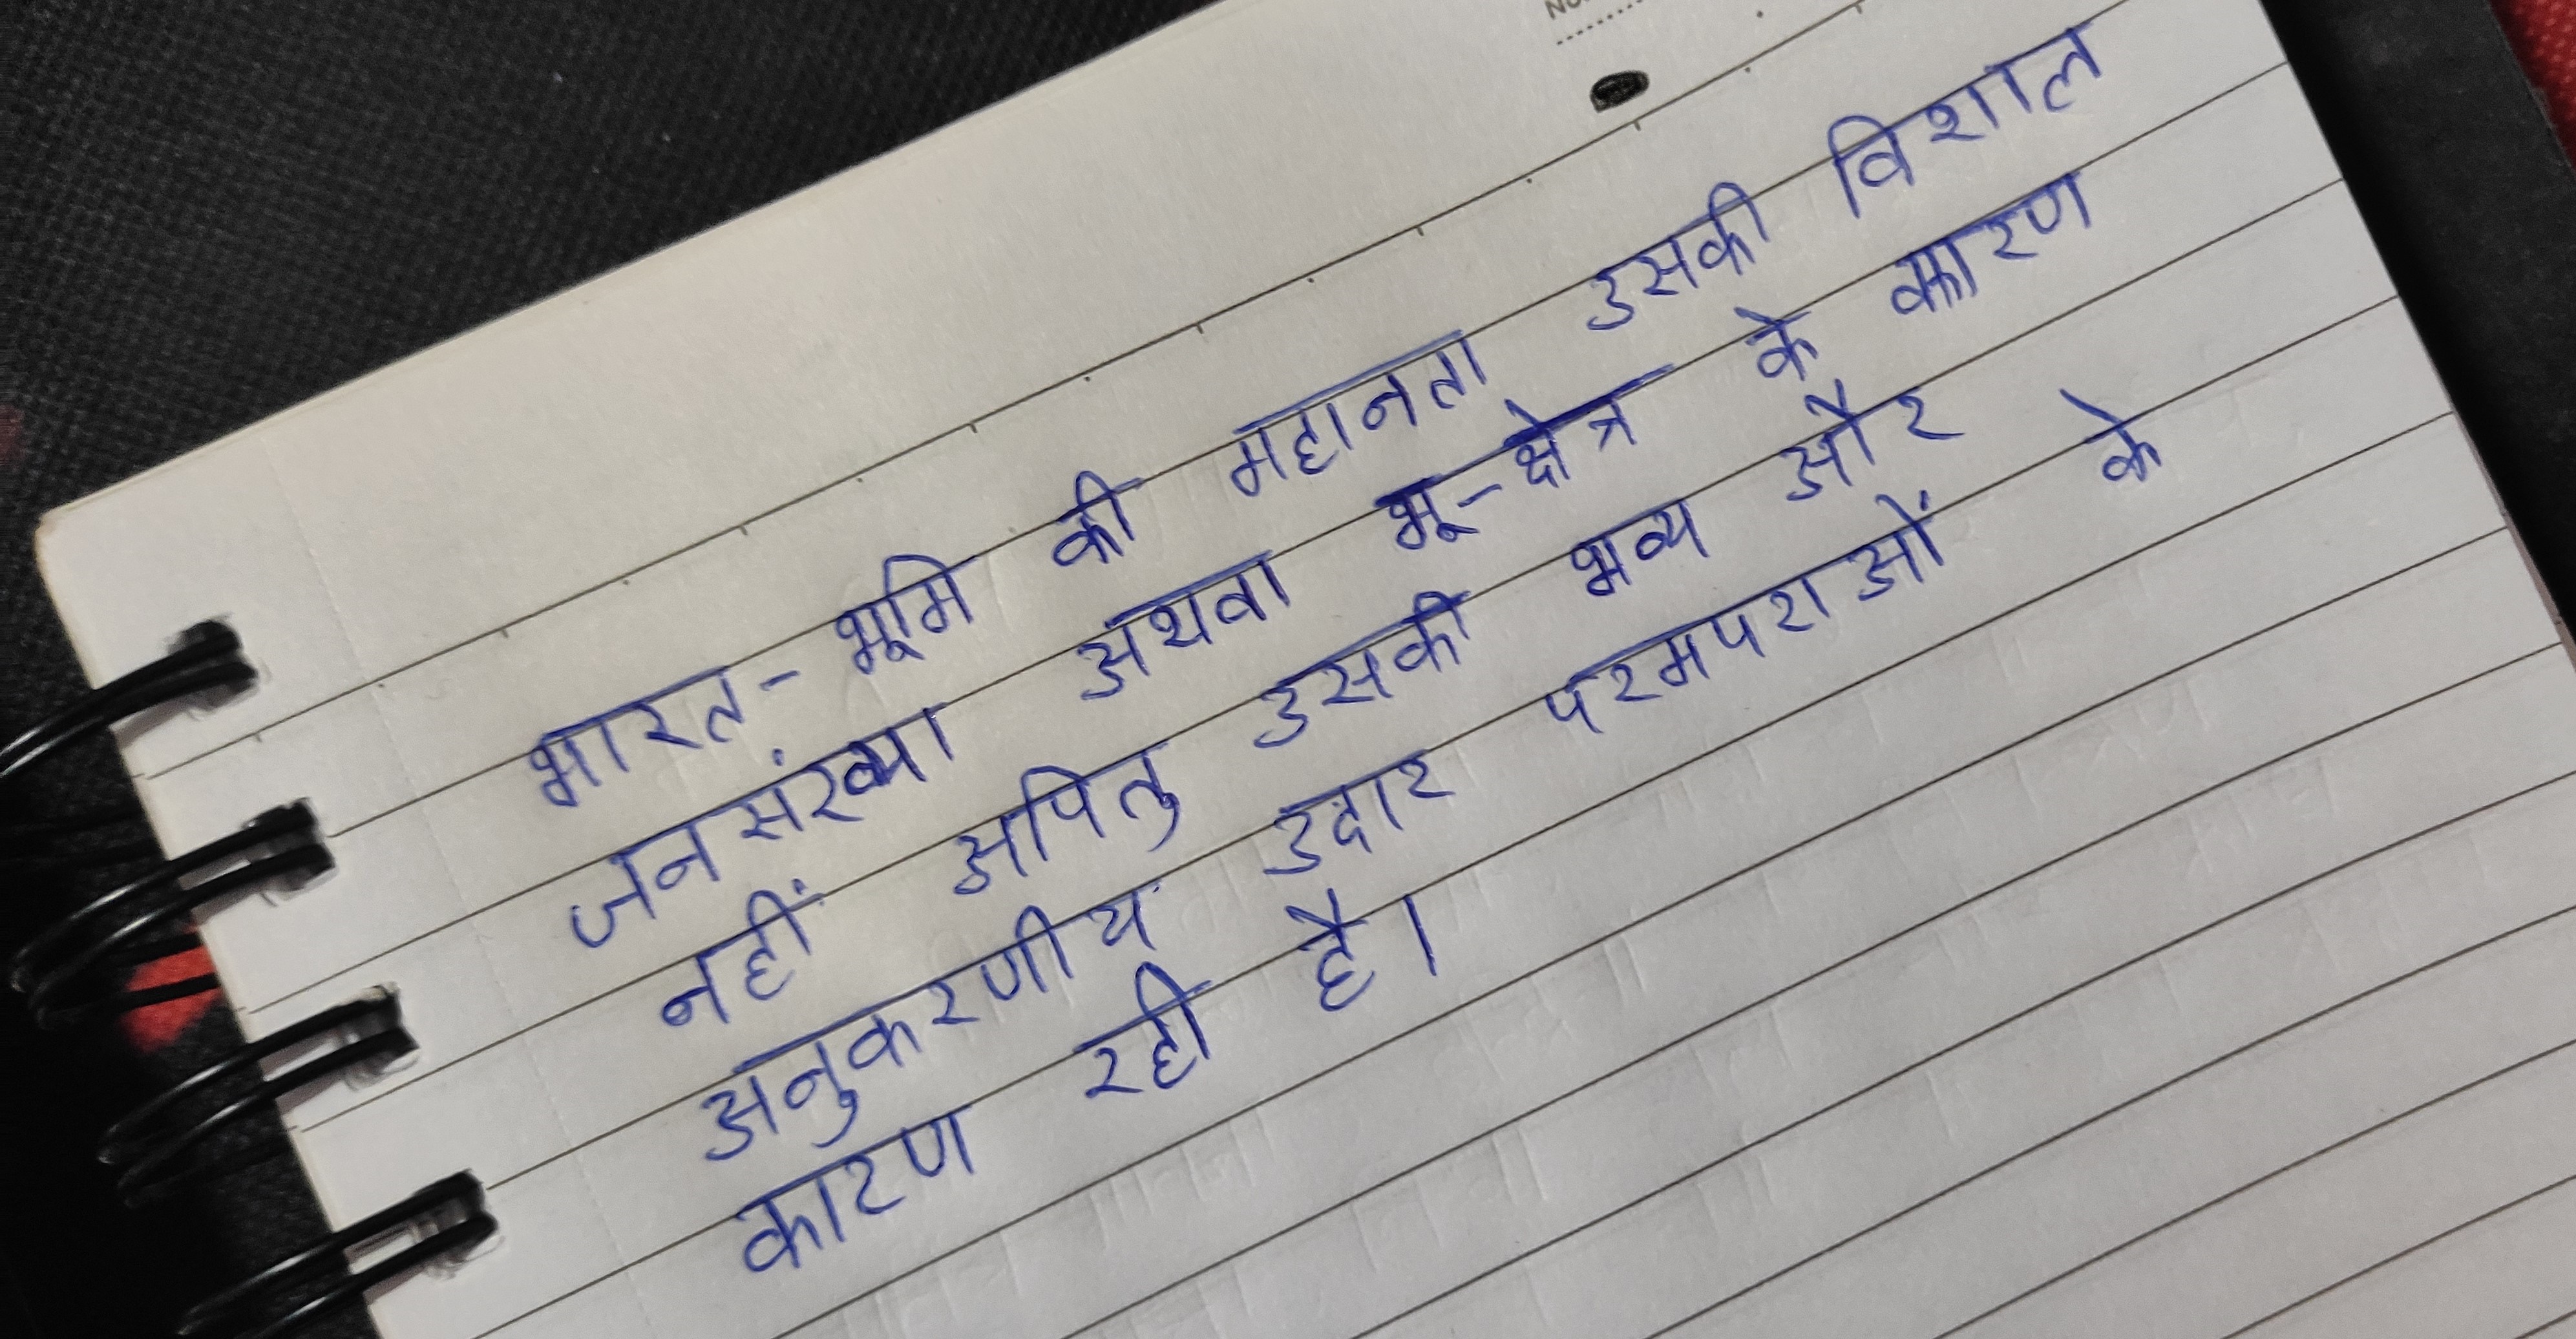 भारत-भूमि की महानता उसकी विशाल
जनसंख्या अथवा भू-क्षेत्र के कारण
नहीं अपितु उसकी भव्य और
अनुकरणीय उदार परमपराओं के
कारण रही है।